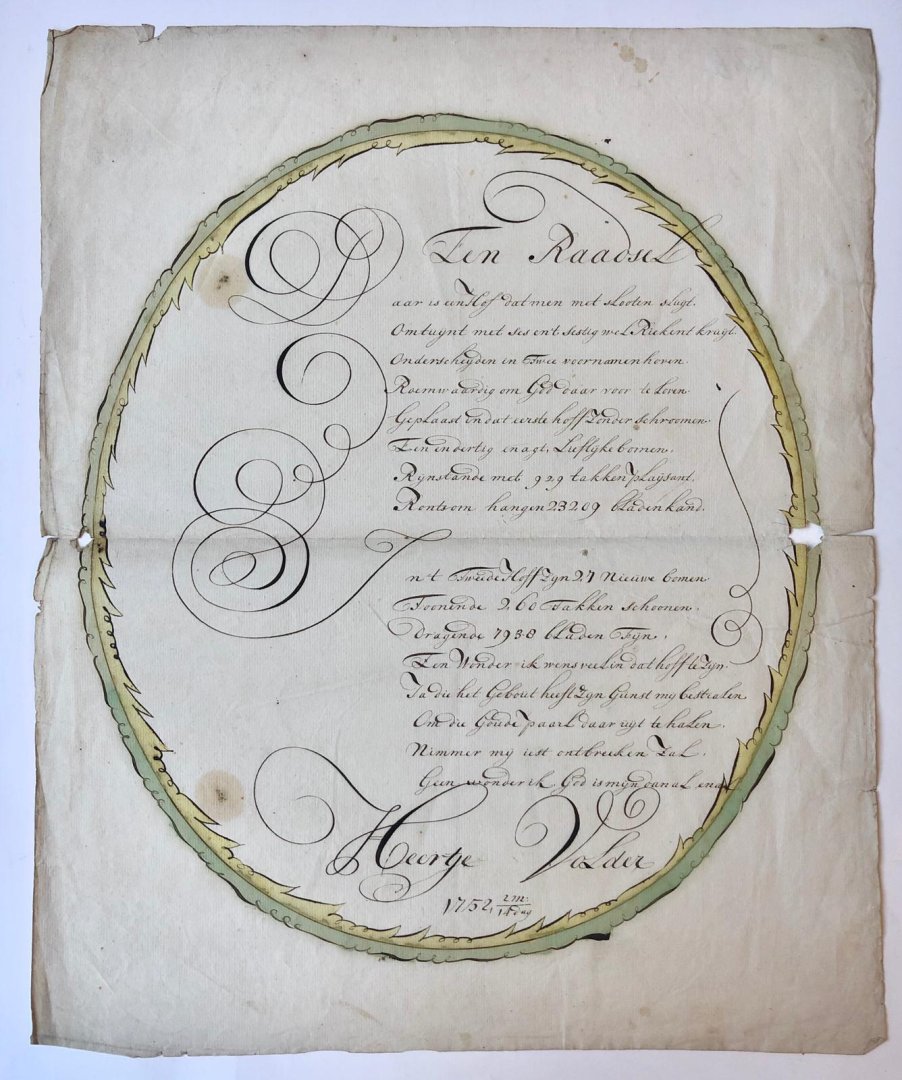 Een Raadsel
Daar is een Hof dat men met slooten slugt.
Omtuynt met ses en't sestig wel Riekent krugt
Onderscheyden in Twee voornamen hoven
Roemwaardig om God daar voor te loven
Geplaast in dat eerste hoff zonder schroomen
Een en dertig en agt, Lieflijke bomen.
Rijnstande met 929 takken playsant.
Rontsom hangen 23209 bladen kand.
Int Tweede Hoff zyn 27 Nieuwe bomen
Toonende 260 Takken schoonen.
Dragende 7938 bladen Fyn.
Een Wonder ik wens veel in dat hoff te zyn.
Ja die het Gebout heeft zyn Gunst my bestralen
Om die Goude paarl daar uyt te halen.
Nimmer my iest ontbreeken zal.
Geen wonder ik, God is myn
Heertje Volder
1752, 2m. 14 dag